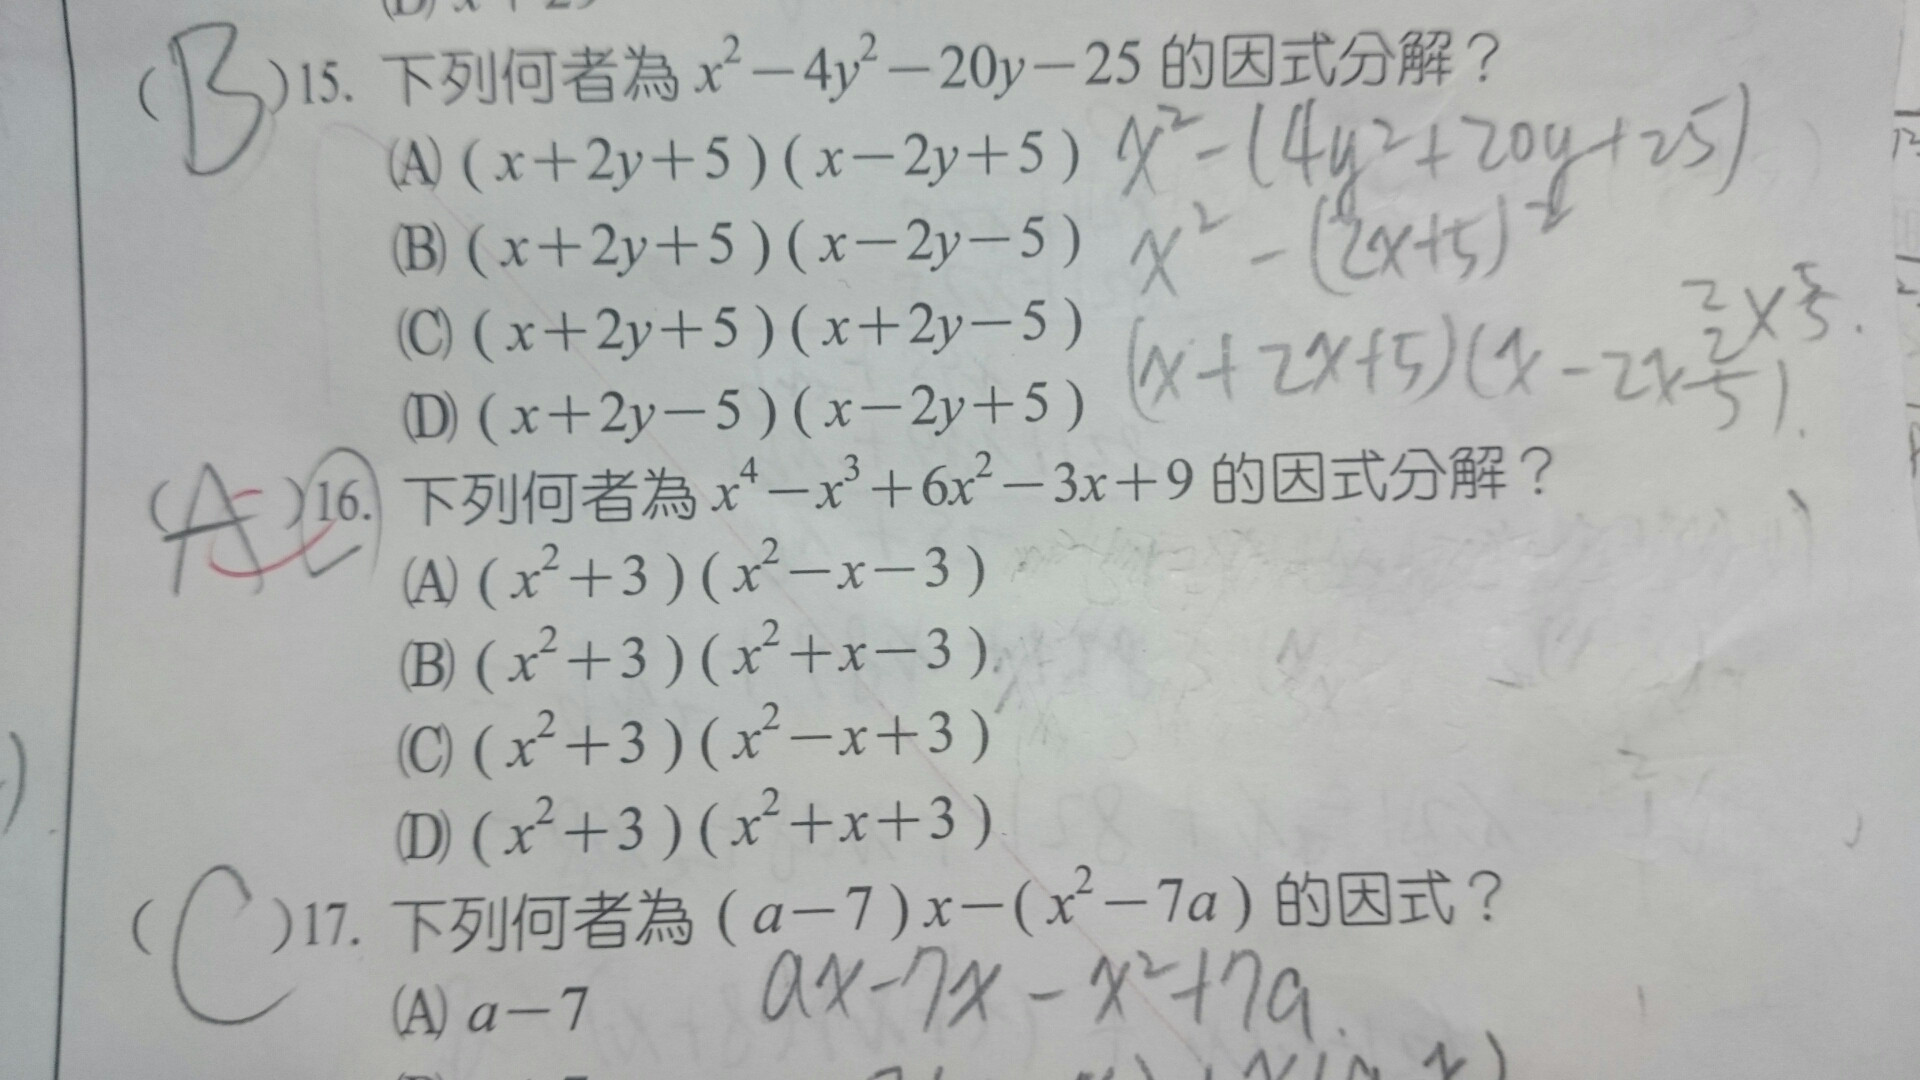 (B)15. 下列何者為 x²－4y²－20y－25 的因式分解？
(A) ( x＋2y＋5 ) ( x－2y＋5 ) x²-(4y²+20y+25)
(B) ( x＋2y＋5 ) ( x－2y－5 ) x²-(2x+5)²
(C) ( x＋2y＋5 ) ( x＋2y－5 ) (x+2x+5)(x-2x-5).
2 5
2×5.
(D) ( x＋2y－5 ) ( x－2y＋5 )
(A)16. 下列何者為 x⁴－x³＋6x²－3x＋9 的因式分解？
(A) ( x²＋3 ) ( x²－x－3 )
(B) ( x²＋3 ) ( x²＋x－3 )
(C) ( x²＋3 ) ( x²－x＋3 )
(D) ( x²＋3 ) ( x²＋x＋3 )
(C)17. 下列何者為 ( a－7 ) x－( x²－7a ) 的因式？
(A) a－7 ax-7x-x²+7a.